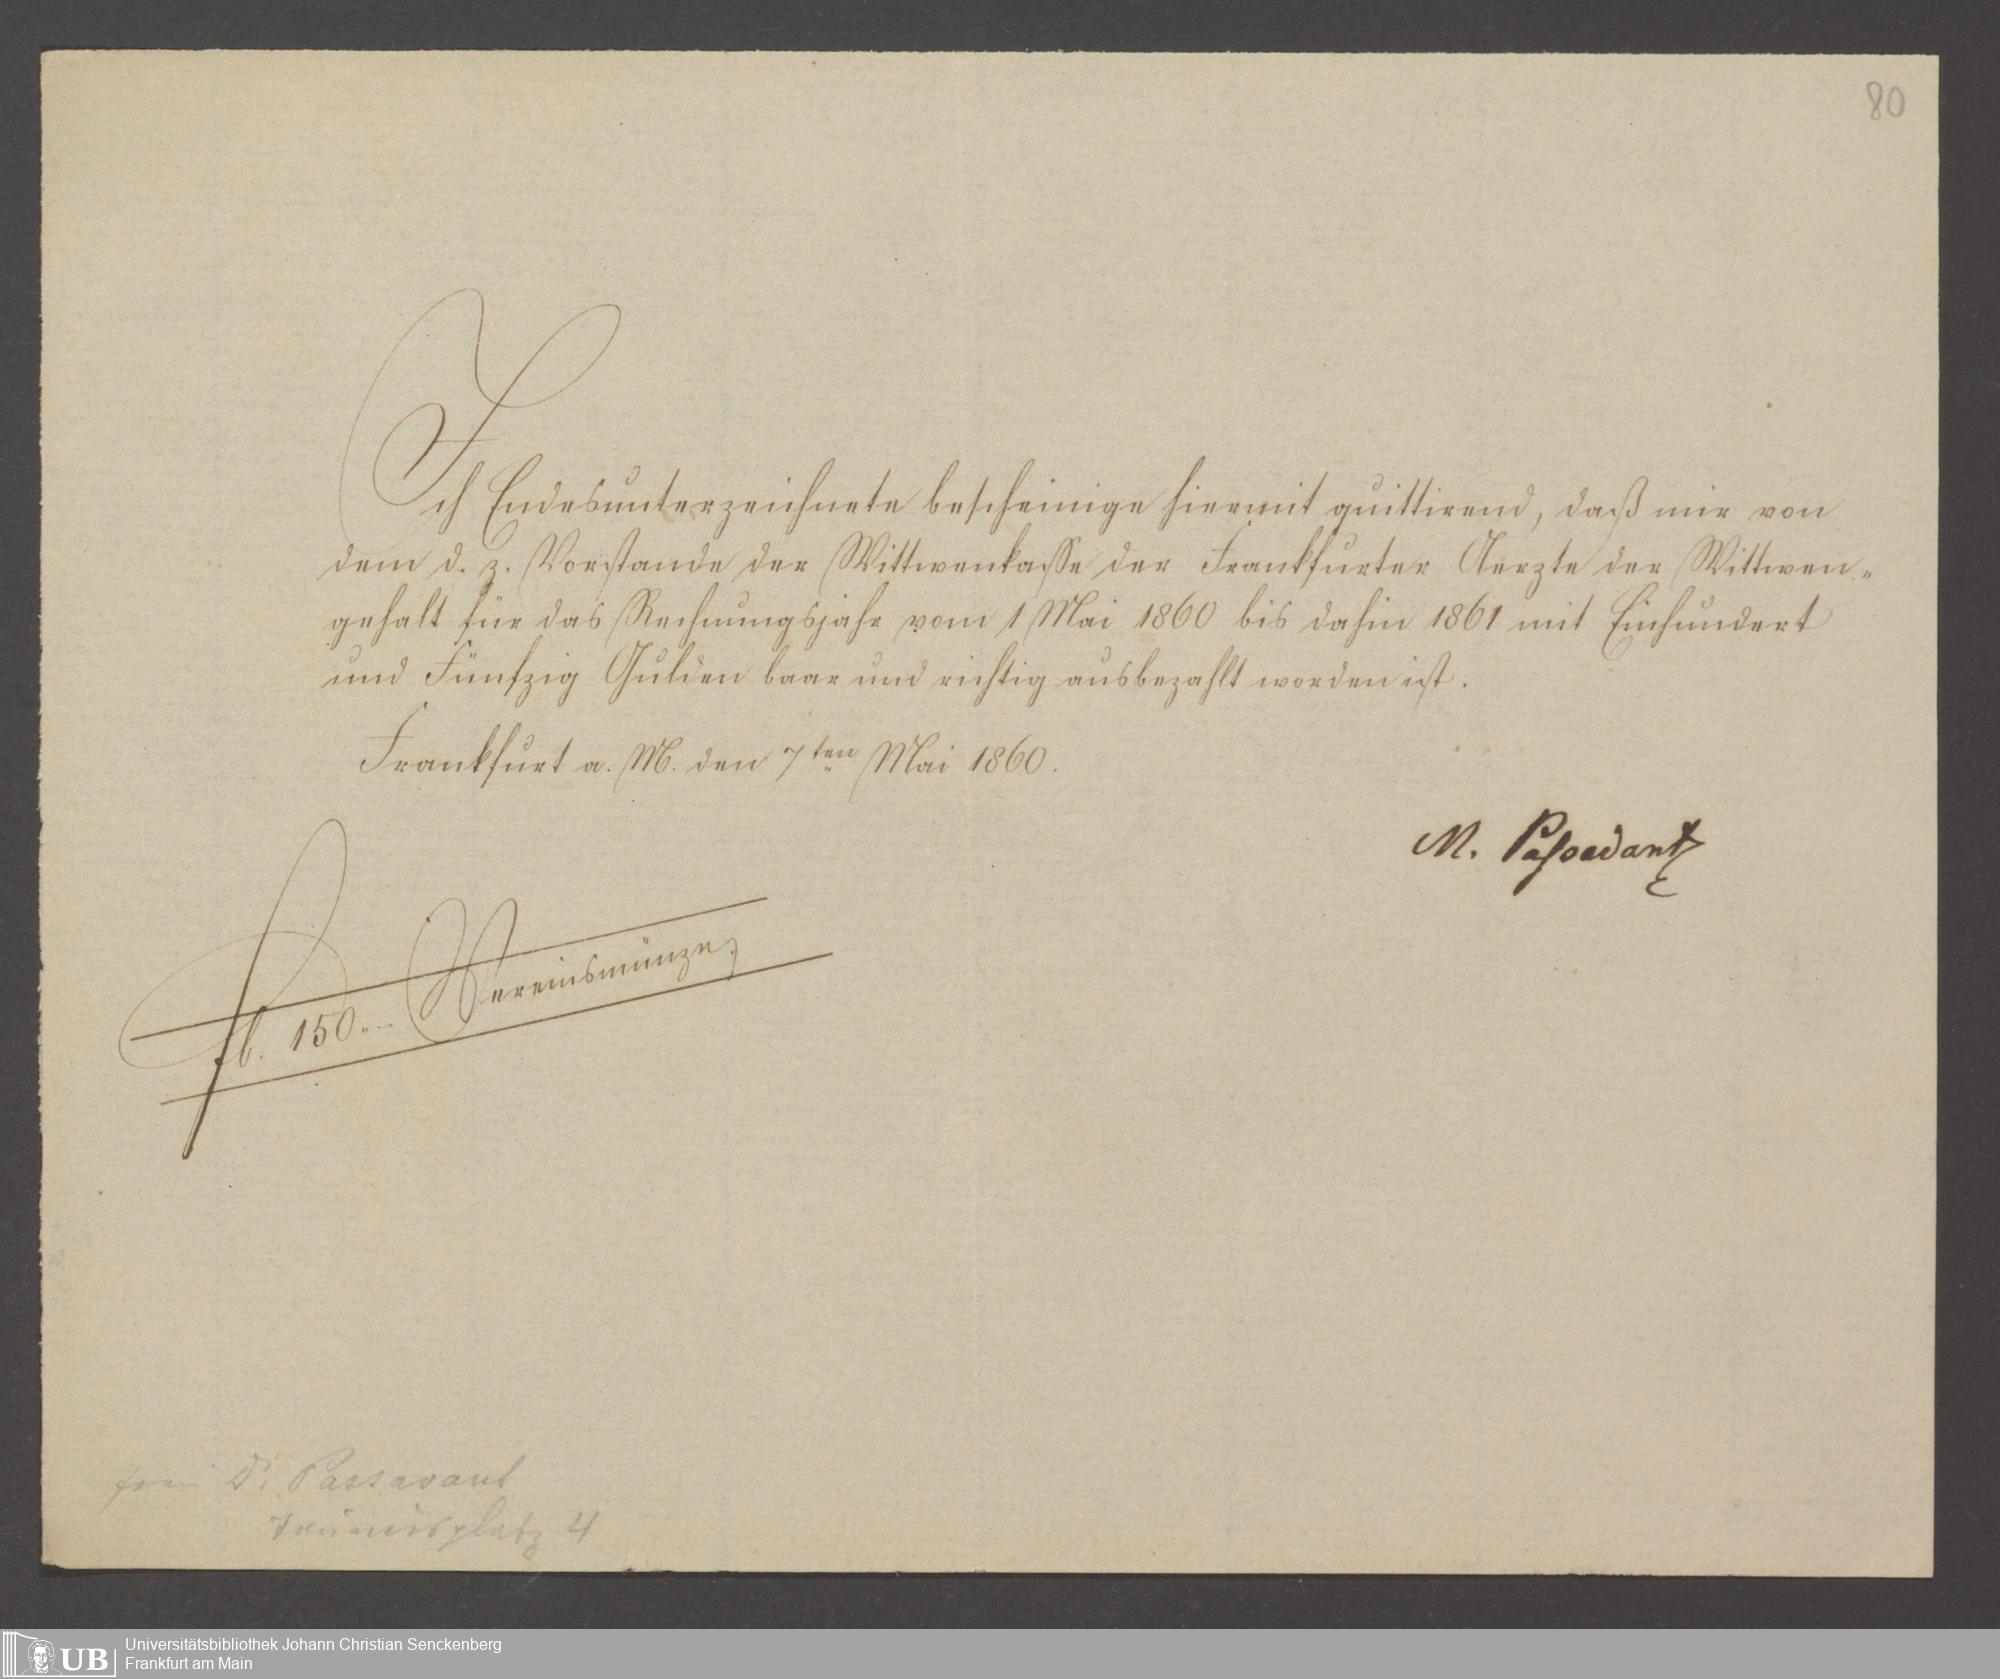 80
Ich Endesunterzeichnete bescheinige hiermit quittirend, daß mir von
dem d. z. Vorstande der Wittwenkasse der Frankfurter Aerzte der Wittwen„
gehalt für das Rechnungsjahr vom 1 Mai 1860 bis dahin 1861 mit Einhundert
und Fünfzig Gulden baar und richtig ausbezahlt worden ist.
Frankfurt a. M. den 7ten Mai 1860.
M. Passavant
fl. 150.„ Vereinsmünze.
Dr Passavant
4
UB
Universitätsbibliothek Johann Christian Senckenberg
Frankfurt am Main